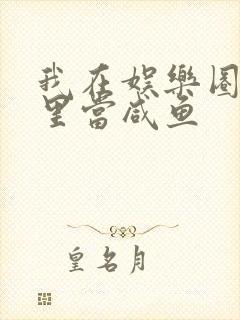 我在娱樂圈
里當咸鱼
皇名月